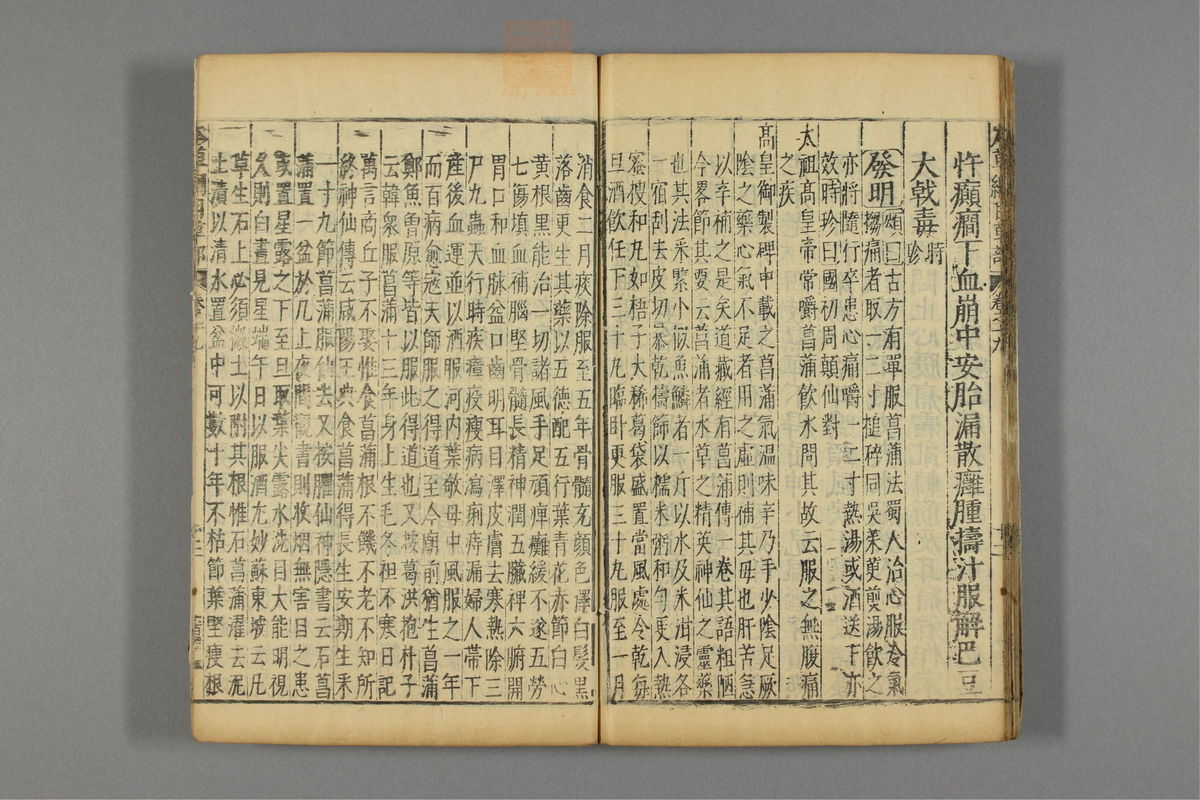 忤癲癎下血崩中安胎漏散癰腫擣汁服解巴豆
大戟毒時珍
發明頌曰古方有單服菖蒲法蜀人治心腹冷氣
搊痛者取一二寸搥碎同吳茱萸煎湯飲之
亦將隨行卒患心痛嚼一二寸熱湯或酒送下亦
效時珍曰國初周顛仙對
太祖高皇帝常嚼菖蒲飲水問其故云服之無腹痛
之疾
高皇御製碑中載之菖蒲氣溫味辛乃手少陰足厥
陰之藥心氣不足者用之虛則補其母也肝苦急
以辛補之是矣道藏經有菖蒲傳一卷其語粗陋
今畧節其要云菖蒲者水草之精英神仙之靈藥
也其法采緊小似魚鱗者一斤以水及米泔浸各
一宿刮去皮切暴乾擣篩以糯米粥和勻更入熟
蜜搜和丸如梧子大稀葛袋盛置當風處令乾每
旦酒飲任下三十丸臨臥更服三十丸服至一月
消食二月痰除服至五年骨髓充顏色澤白髮黑
落齒更生其藥以五德配五行葉青花赤節白心
黃根黑能治一切諸風手足頑痺癱緩不遂五勞
七傷填血補腦堅骨髓長精神潤五臟裨六腑開
胃口和血脉益口齒明耳目澤皮膚去寒熱除三
尸九蟲天行時疾瘴疫瘦病瀉痢痔漏婦人帶下
産後血運並以酒服河內葉敬母中風服之一年
而百病愈寇天師服之得道至今廟前猶生菖蒲
鄭魚曾原等皆以服此得道也又按葛洪抱朴子
云韓衆服菖蒲十三年身上生毛冬袒不寒日記
萬言商丘子不娶惟食菖蒲根不饑不老不知所
終神仙傳云咸陽王典食菖蒲得長生安期生采
一寸九節菖蒲服仙去又按臞仙神隱書云石菖
蒲置一盆於几上夜間觀書則收烟無害目之患
或置星露之下至旦取葉尖露水洗目大能明視
久則白晝見星端午日以服酒尤妙蘇東坡云凡
草生石上必須微土以附其根惟石菖蒲濯去泥
土漬以清水置盆中可數十年不枯節葉堅瘦根